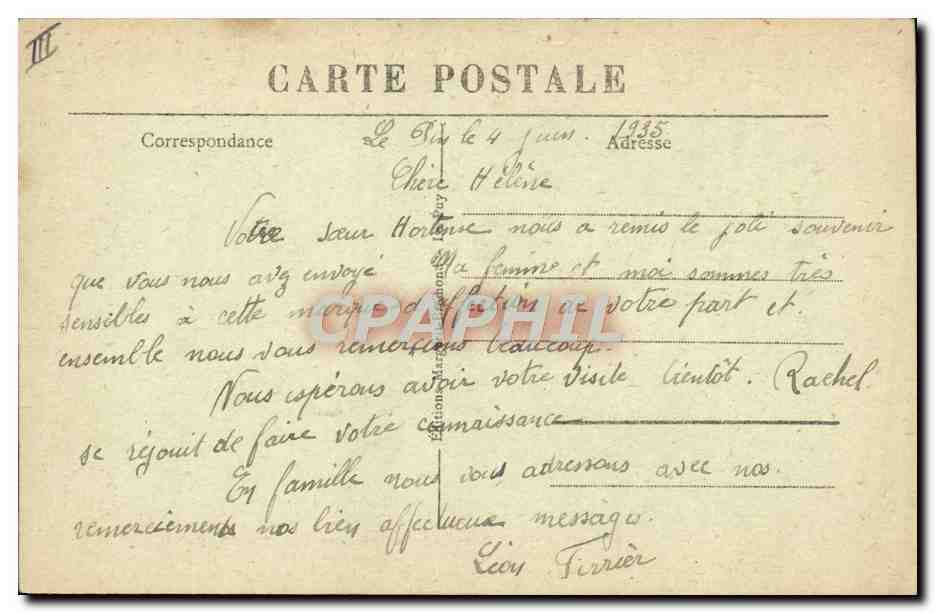 III
CARTE POSTALE
Correspondance
Adresse
Le Pin le 4 juin. 1935
Chère Hélène
Votre sœur Hortense nous a remis le joli souvenir
que vous nous avez envoyé Ma femme et moi sommes très
sensibles à cette marque d'affection de votre part et
ensemble nous vous remercions beaucoup.
Nous espérons avoir votre visite bientôt. Rachel
se réjouit de faire votre connaissance
En famille nous vous adressons avec nos
remerciements nos bien affectueux messages.
Léon
Éditions Margerit-Brémond Le Puy
CPAPHIL